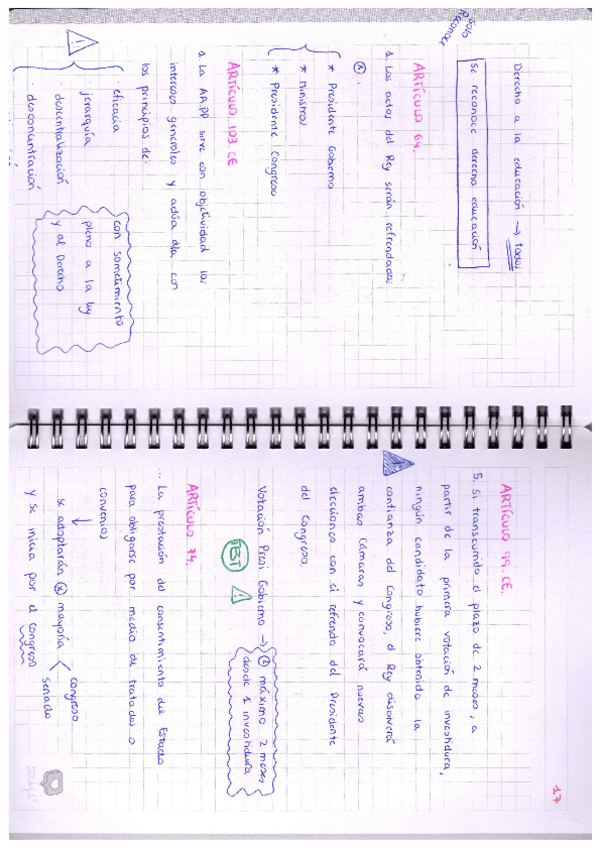 Solo Reconoce
Derecho a la educación → todos
Se reconoce derecho educación
ARTÍCULO 64.
1. Los actos del Rey serán refrendados
* Presidente Gobierno
* Ministros
* Presidente Congreso
ARTÍCULO 103 CE
1. La AAPP sirve con objetividad los
intereses generales y actúa dla con
los principios de:
· eficacia
jerarquía
descentralización
· desconcentración
con sometimiento
pleno a la ley
y al Derecho
17
ARTÍCULO 99.CE.
5. Si transcurrido el plazo de 2 meses, a
partir de la primera votación de investidura,
ningún candidato hubiere obtenido la
confianza del Congreso, el Rey disolverá
ambas Cámaras y convocará nuevas
elecciones con el refrendo del Presidente
del Congreso.
Votación Presi Gobierno → máximo 2 meses
desde 1 investidura
BT
ARTÍCULO 74.
... La prestación del consentimiento del Estado
para obligarse por medio de tratados o
convenios
↓
se adoptarán mayoría < congreso
senado
y se inicia por el congreso